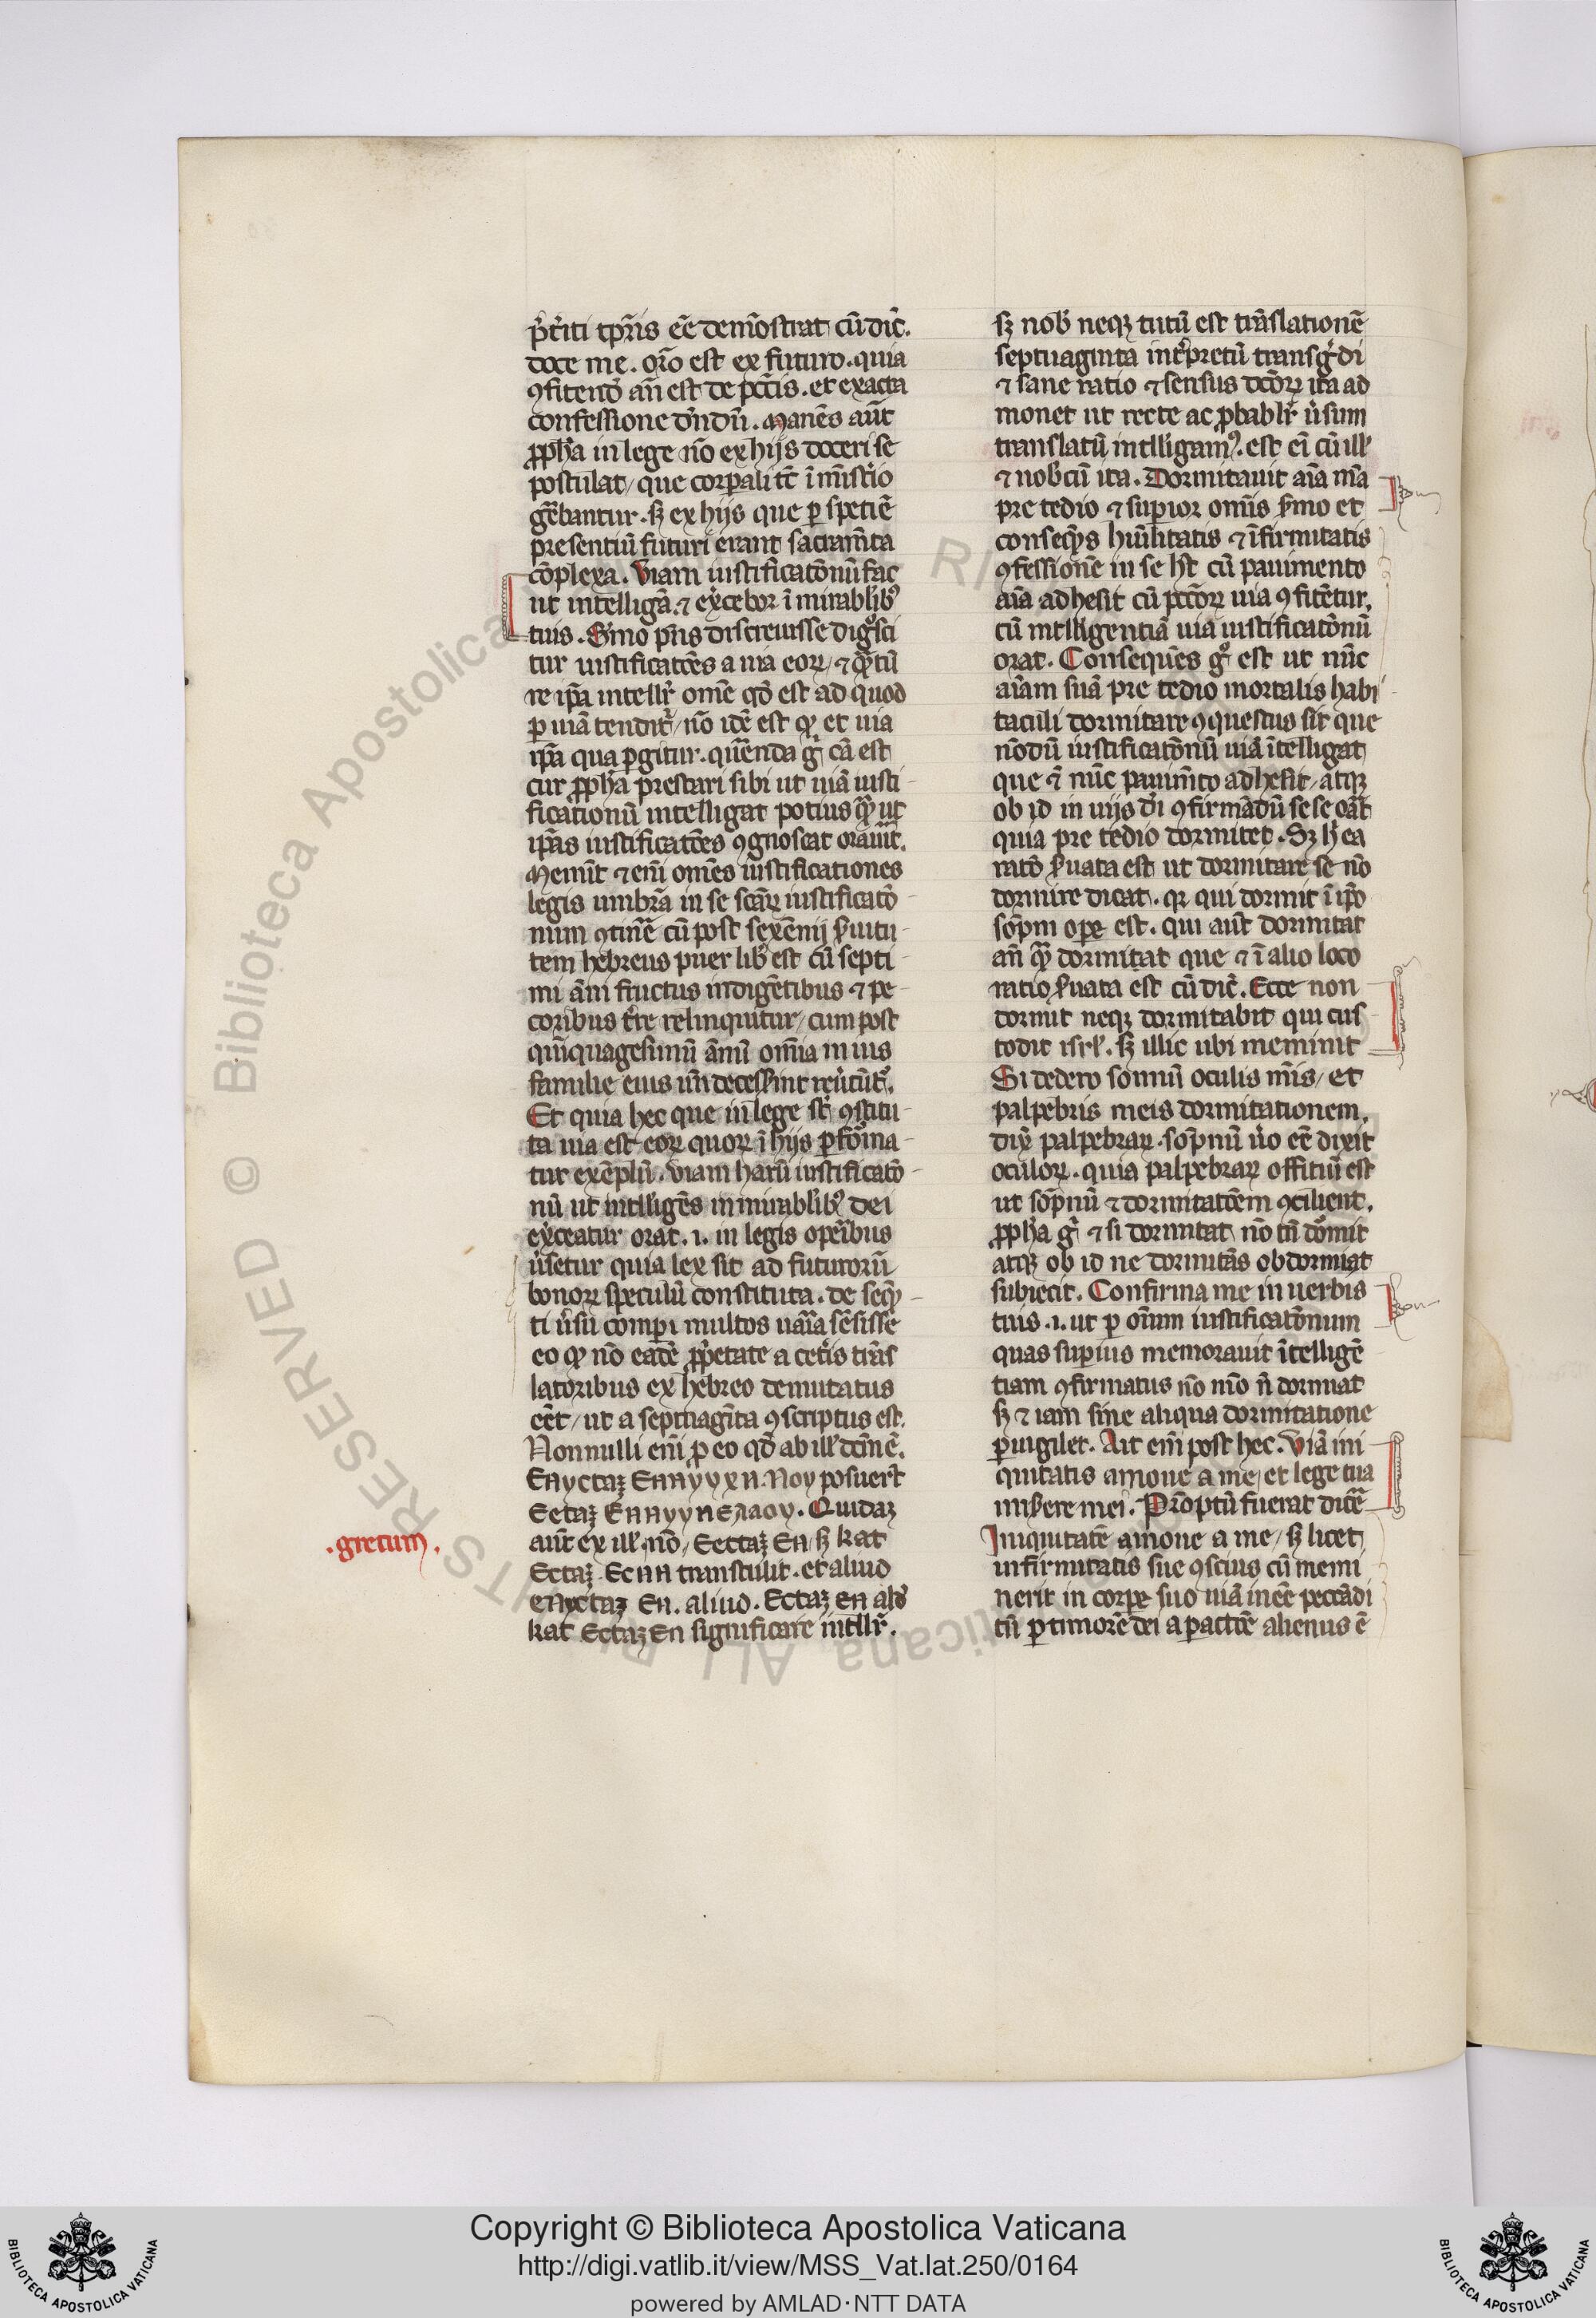 p̄t̄iti tp̄ris eē dem̄ostrat cū dic̄.
doce me. or̄o est ex futuro. quia
ꝯfitend̄ an̄ est de pcc̄is. et exacta
confessione d̄n̄dū. Manēs aūt
ꝓph̄a in lege nō ex hijs doceri se
postulat/ que corꝑali tc̄ ī mīst̄io
gr̄ebantur. sꝫ ex hijs que ꝑ spetiē
presentiū futuri erant sacram̄ta
cōplexa. Viam iustificatōnū fac
ut intelligā. ⁊ ex̄cebor ī mirablib⁹
tuis. S̄mo pn̄s discreuisse dig̊sci
tur iustificatōes a uia eoꝝ/ ⁊ qꝫtū
re ip̄a intellr̄ omē qd̄ est ad quod
ꝑ uiā tendit̄/ nō idē est qꝫ et uia
ip̄a qua ꝑgitur. quēnda g̊ cā est
cur ꝓph̄a prestari sibi ut uiā iusti
ficationū intelligat potius qꝫ ut
ip̄as iustificatōes ꝯgnoscat orauit̄.
Memīt ⁊ enī omēs iustificationes
legis umbrā in se scāꝝ iustificatō
num ꝯtinē cū post sexēnij s̄uitu
tem hebreus puer lib̄ est cū septi
mi ām fructus indigētibus ⁊ pe
coribus t̄re relinquitur/ cum post
quīquagesimū ānū om̄ia in ius
familie eius un̄ decess̄int reūtūt̄.
Et quia hec que in lege st̄ ꝯstitu
ta uia est eoꝝ quoꝝ ī hijs ꝑfōma
tur exēplū. Viam harū iustificatō
nū ut intlligēs in mirablib⁹ dei
ex̄ceatur orat. .i. in legis oper̄ibus
ūsetur quia lex sit ad futurorū
bonoꝝ speculū constituta. de seqꝫ
ti ūsu comꝑi multos uar̄ia sēsisse
eo qꝫ nō eadē ꝓpetate a cet̄is trās
latoribus ex hebreo demutatus
eēt/ ut a septuagīta ꝯscriptus est.
Nonnulli enī ꝑ eo qd̄ ab ill̄ dcm̄ ē.
aūt ex ill̄. nō/
transtulit. et aliud
significare intllr̄.
.gretum.
sꝫ nob̄ neqꝫ tutū est trāslationē
septuaginta int̄pretū transg̊di
⁊ sane ratio ⁊ sensus dc̄oꝝ ita ad
monet ut recte ac ꝓbablr̄ ūsum
translatū intlligam⁹. est eī cū ill̄
⁊ nob̄cū ita. Dormitauit aīa m̄a
pre tedio ⁊ suꝑior om̄is s̄mo et
conseqꝫs hūilitatis ⁊ īfirmitatis
ꝯfessionē in se ht̄ cū pauimento
aīa adhesit cū pcc̄oꝝ uia ꝯfitētur.
cū intlligentiā uia iustificatōnū
orat. Consequēs g̊ est ut nūc
aīam suā pre tedio mortalis habi
taculi dormitare ꝯquestus sit que
nōdū iustificatōnū uiā ītelligat
que ⁊ nūc pauim̄to adhesit/ atqꝫ
ob id in uijs d̄i ꝯfirmādū se se oāt̄
quia pre tedio dormitet. Sꝫ h̄ ea
ratō s̄uata est ut dormitare se nō
dormire dicat. qꝛ qui dormit ī ip̄o
sōpni ope est. qui aūt dormitat
an̄ qꝫ dormitat que ⁊ ī alio loco
ratio s̄uata est cū dic̄. Ecce non
dormit neqꝫ dormitabit qui cus
todit isrl̄. sꝫ illic ubi meminit
Si dedero somnū oculis m̄is/ et
palpebris meis dormitationem.
dix̄ palpebraꝝ. sōpnū ūo eē dixit
oculoꝝ. quia palpebraꝝ offitiū est
ut sōpnū ⁊ dormitatōem ꝯcilient.
ꝓph̄a g̊ ⁊ si dormitat nō tn̄ dōmit
atqꝫ ob id ne dormitās obdormiat
subiecit. Confirma me in uerbis
tuis .i. ut ꝑ oīum iustificatōnum
quas suꝑius memorauit ītelligē
tiam ꝯfirmatus nō mō n̄ dormiat
sꝫ ⁊ iam sine aliqua dormitatione
ꝑuigilet. Ait enī post hec. Viā ini
quitatis amoue a me/ et lege tua
mis̄ere mei. Prōptū fuerat dicē
Iniquitatē amoue a me/ sꝫ licet
infirmitatis sue ꝯscius cū memi
nerit in corpe suo uiā ineē peccādi
tn̄ ꝑ timorē dei a ꝑactiōe alienus ē
Copyright © Biblioteca Apostolica Vaticana
http://digi.vatlib.it/view/MSS_Vat.lat.250/0164
powered by AMLAD·NTT DATA